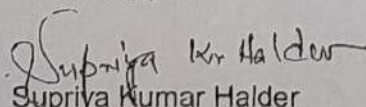 Supriya Kr Halder
Supriya Kumar Halder